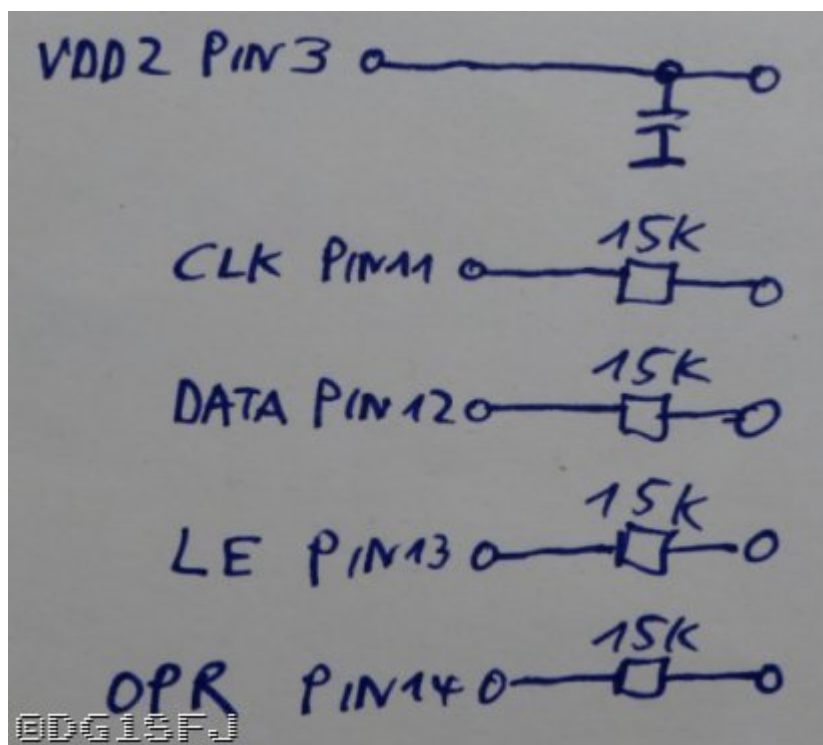 VDD2 PIN3
15K
CLK PIN11
15K
DATA PIN12
15K
LE PIN13
15K
OPR PIN14
©DG1SFJ